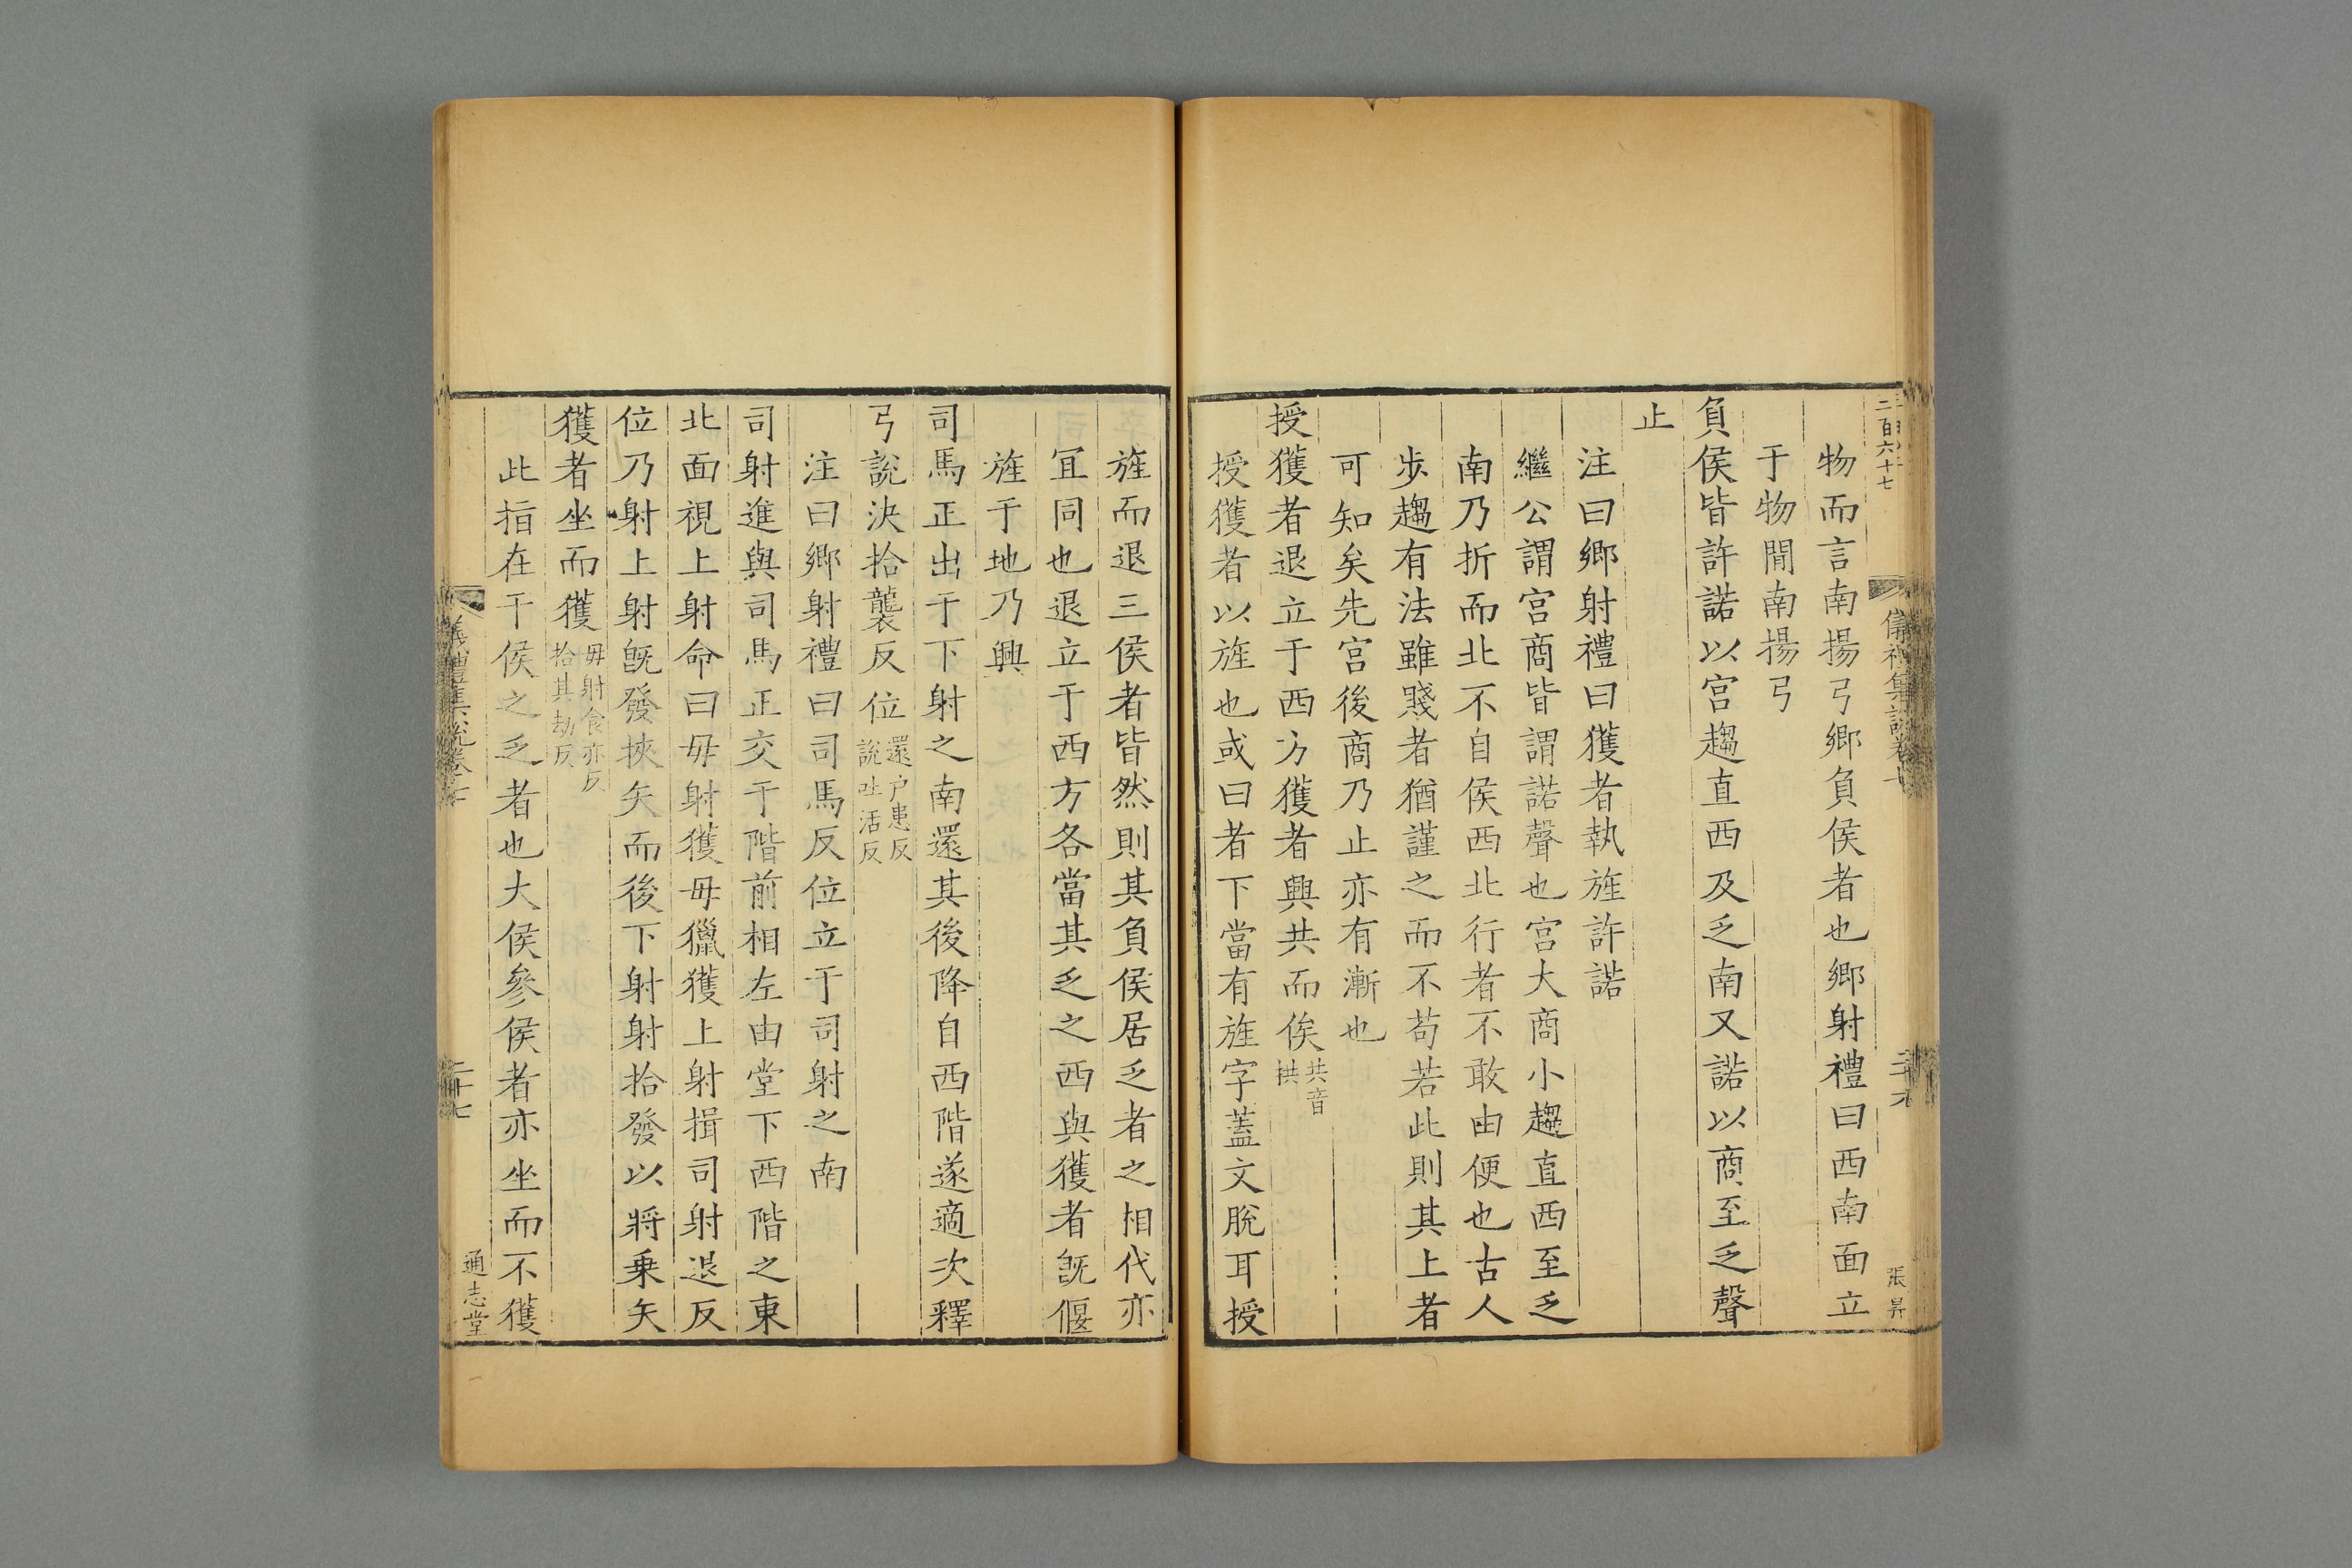 二百六十七
物而言南揚弓鄉負侯者也鄉射禮曰西南面立
于物閒南揚弓
負侯皆許諾以宮趨直西及乏南又諾以商至乏聲
止
注曰鄉射禮曰獲者執旌許諾
繼公謂宮商皆謂諾聲也宮大商小趨直西至乏
南乃折而北不自侯西北行者不敢由便也古人
步趨有法雖賤者猶謹之而不苟若此則其上者
可知矣先宮後商乃止亦有漸也
授獲者退立于西方獲者興共而俟共音拱
授獲者以旌也或曰者下當有旌字蓋文脫耳授
旌而退三侯者皆然則其負侯居乏者之相代亦
冝同也退立于西方各當其乏之西與獲者旣偃
旌于地乃興
司馬正出于下射之南還其後降自西階遂適次釋
弓說決拾襲反位還户患反說吐活反
注曰鄉射禮曰司馬反位立于司射之南
司射進與司馬正交于階前相左由堂下西階之東
北面視上射命曰毋射獲毋獵獲上射揖司射退反
位乃射上射旣發挾矢而後下射射拾發以將乗矢
獲者坐而獲毋射食亦反拾其劫反
此指在干侯之乏者也大侯參侯者亦坐而不獲
儀禮集說卷七
二十七
通志堂
張昇